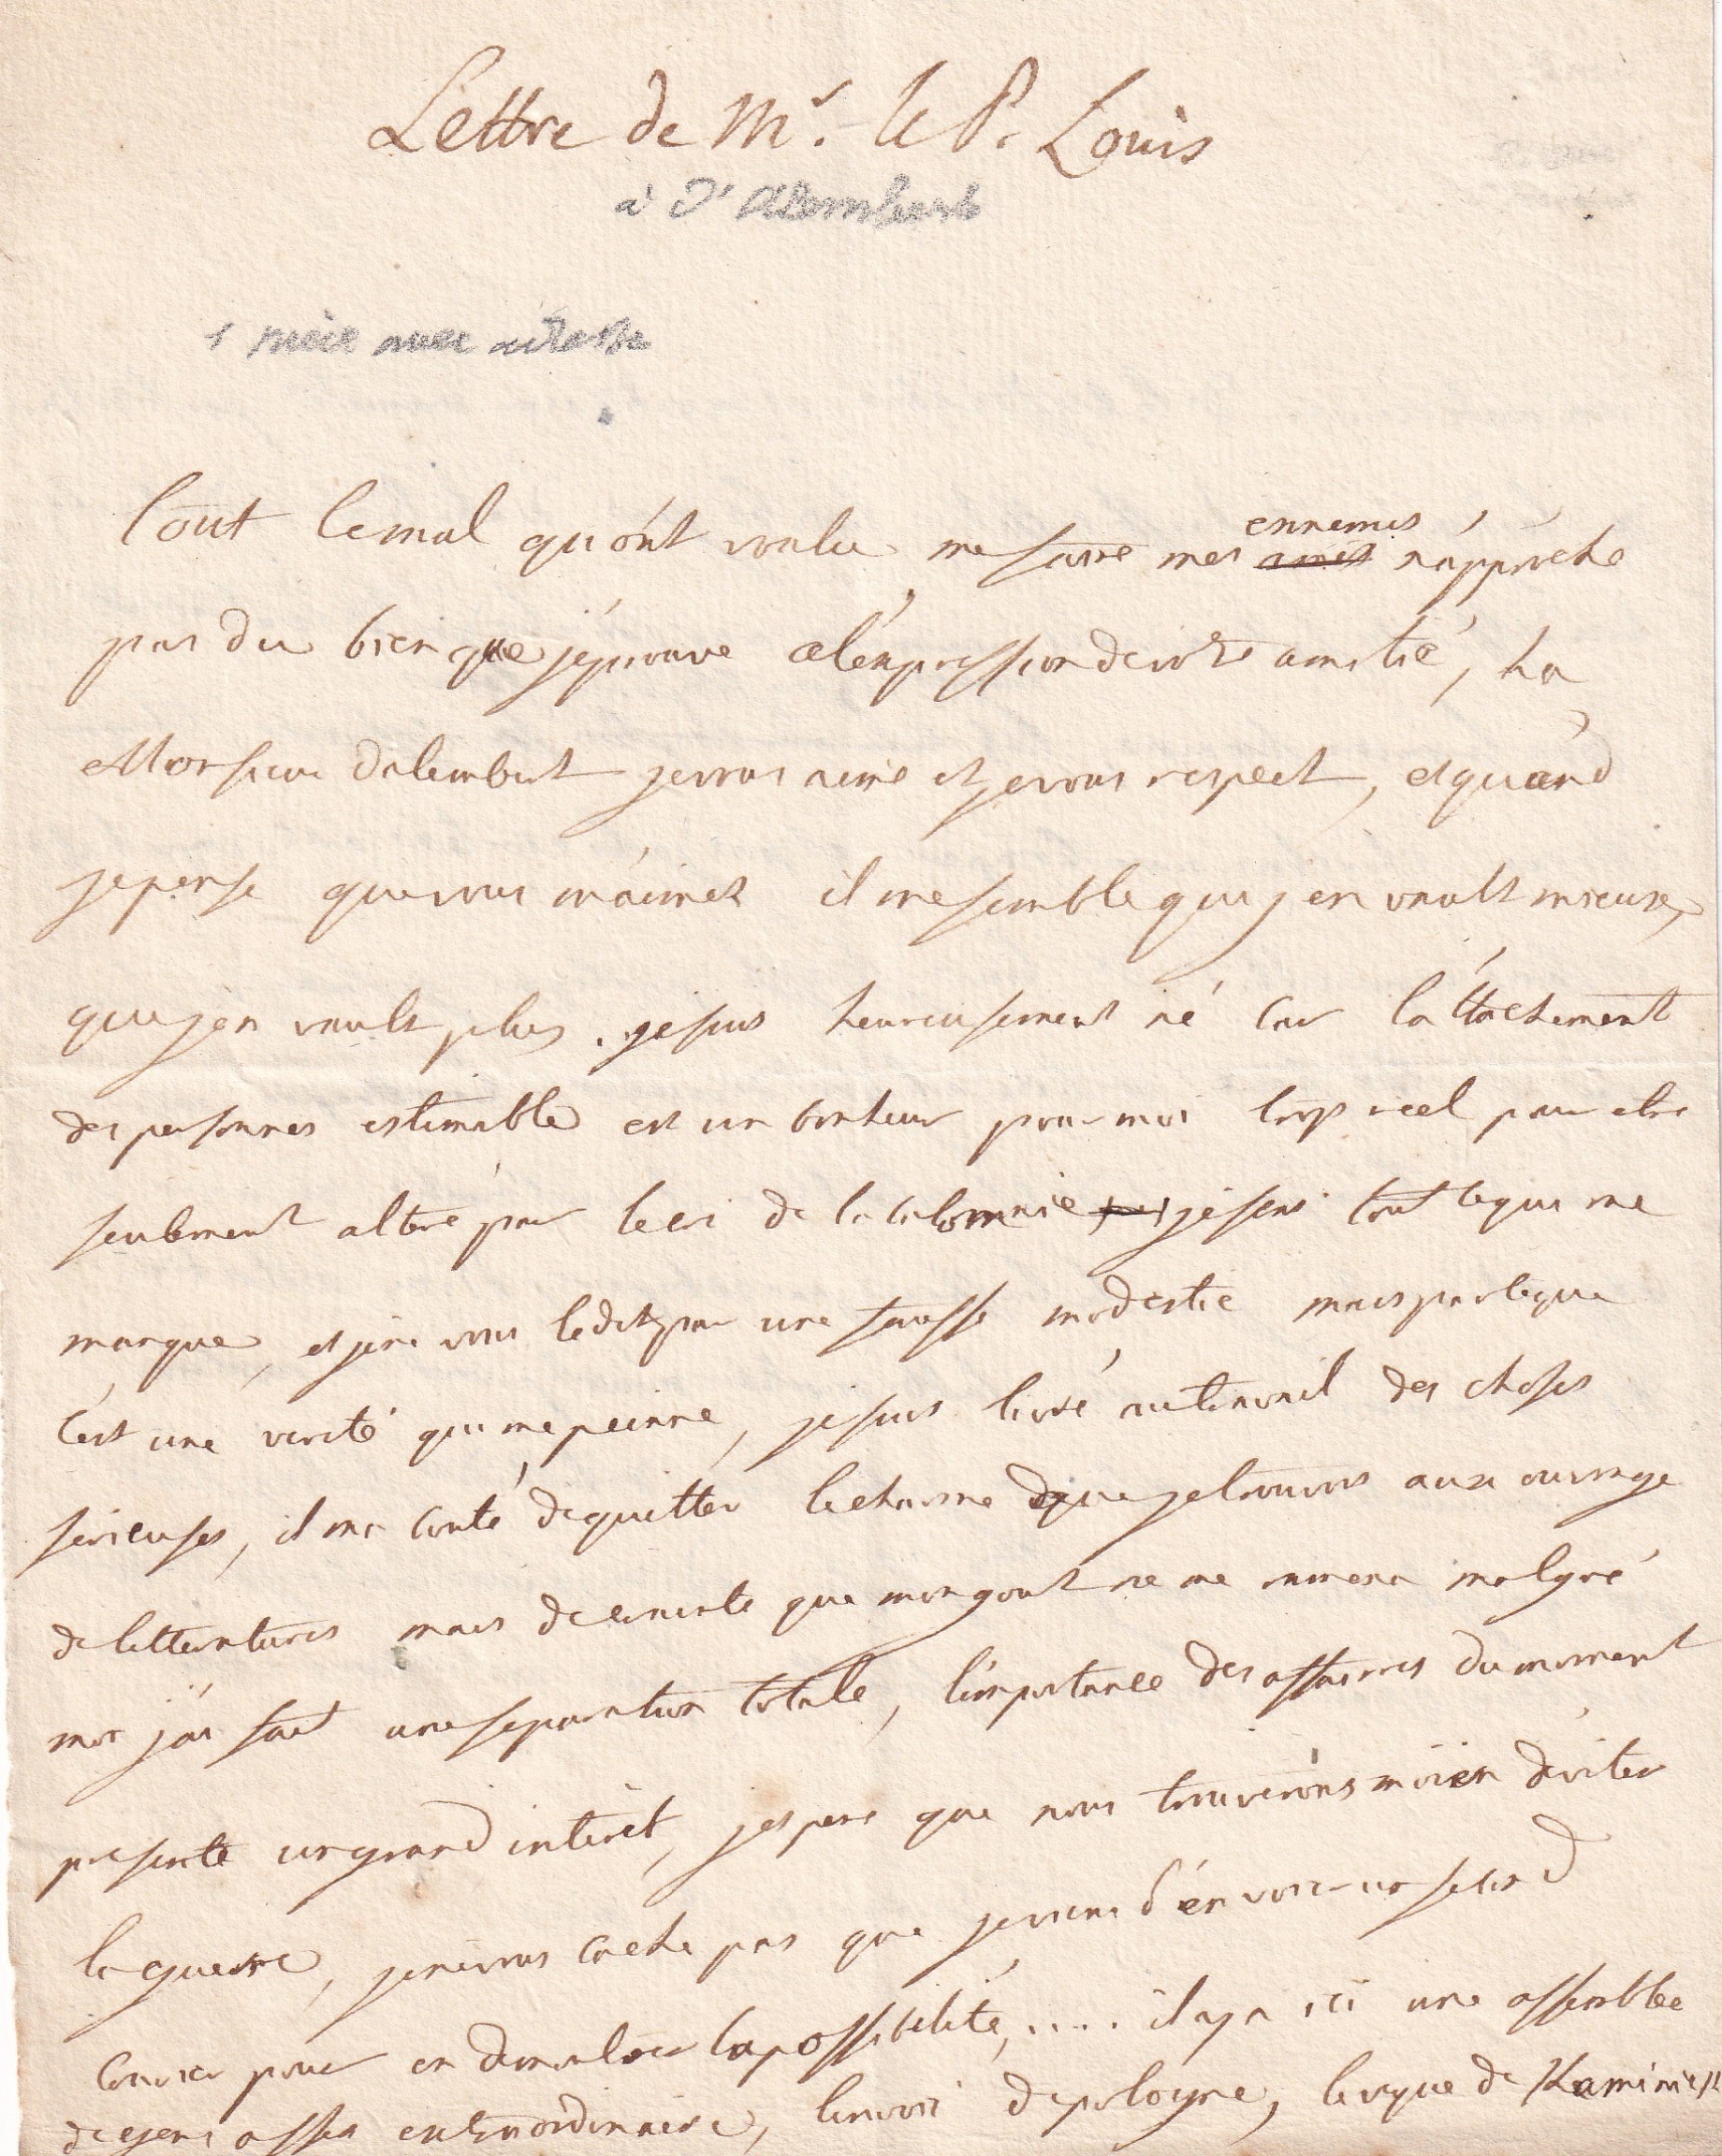 Lettre de Mr. le P. Louis
à D'Alembert
1 pièce avec adresse
Tout lemal qu'ont voulu me faire mes ennemis amis n'approche
pas du bien que j'éprouve a l'expression de votre amitié, ha
Monsieur dalembert je vous aime et je vous respect, et quand
je pense que vous m'aimez il me semble que j en vault mieux,
que j'en vault plus. je suis heureusement né car l'attachement
des personnes estimable est un bonheur pour moi trop réel pour etre
seulement altéré par le cri de la calomnie je sens tout ce qui me
manque, et je ne vous le dit par une fausse modestie mais parce que
c'est une verité qui me peinne, je suis livré au travail des choses
serieuses, il m'a couté de quitter le charme que je trouvois aux ouvrage
de litteratures mais de crainte que mon gout ne me ramena malgré
moi j'ai fait une separation totale, l'importance des affaires du moment
presente un grand interêt, j'espere que nous trouverons moïen d'éviter
la guerre, je ne vous cache pas que je viens d'envoier un second
courier pour en demontrer la possibilité, .... il y a ici une assemblée
de gens assez extraordinaire, l'envoié de pologne, l'eveque de Kaminiek